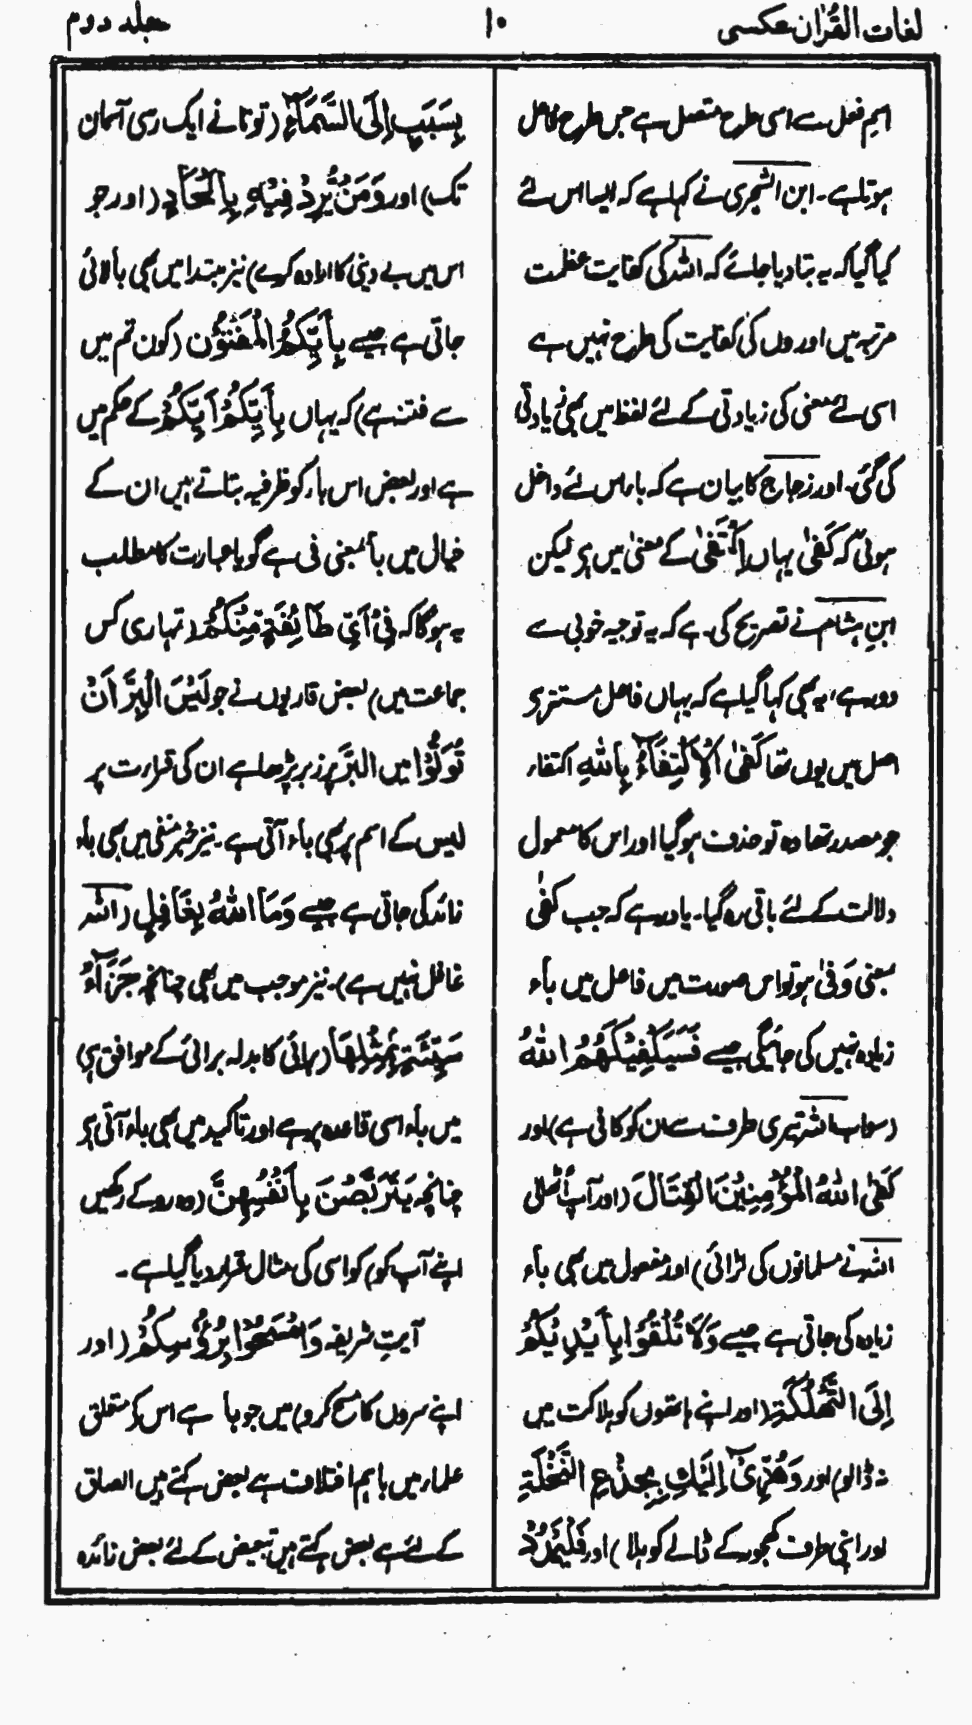 لغات القرآن عکسی
۱۰
جلد دوم
اسم فعل سے اسی طرح متصل ہے جس طرح فاعل
ہوتا ہے ۔ ابن الشجری نے کہا ہے کہ ایسا اس لئے
کیا گیا کہ یہ بتا دیا جائے کہ اللہ کی کفایت عظمت
مرتبہ میں اوروں کی کفایت کی طرح نہیں ہے
اسی لئے معنی کی زیادتی کے لئے لفظ میں بھی زیادتی
کی گئی۔ اور زجاج کا بیان ہے کہ باء اس لئے داخل
ہوئی کہ كَفٰى یہاں اِكْتَفٰى کے معنی میں ہے لیکن
ابنِ ہشام نے تصریح کی ہے کہ یہ توجیہ خوبی سے
دور ہے، یہ بھی کہا گیا ہے کہ یہاں فاعل مستتر ہے
اصل میں یوں تھا كَفٰى الْاِكْتِفَآءُ بِاللهِ اکتفاء
جو مصدر تھا وہ تو حذف ہو گیا اور اس کا معمول
دلالت کے لئے باقی رہ گیا۔ یاد رہے کہ جب كَفٰى
بمعنی وَفٰى ہو تو اس صورت میں فاعل میں باء
زیادہ نہیں کی جائیگی جیسے فَسَيَكْفِيْكَهُمُ اللهُ
(سو اب اللہ تیری طرف سے ان کو کافی ہے) اور
كَفَى اللهُ الْمُؤْمِنِيْنَ الْقِتَالَ (اور آپ اٹھا لی
اللہ نے مسلمانوں کی لڑائی) اور مفعول میں بھی باء
زیادہ کی جاتی ہے جیسے وَلَا تُلْقُوْا بِاَيْدِيْكُمْ
اِلَى التَّهْلُكَةِ (اور اپنے ہاتھوں کو ہلاکت میں
نہ ڈالو) اور وَهُزِّيْ اِلَيْكِ بِجِذْعِ النَّخْلَةِ
اور اپنی طرف کھجور کے ڈالے کو ہلا) اور فَلْيَمْدُدْ
بِسَبَبٍ اِلَى السَّمَآءِ (تو تانے ایک رسی آسمان
تک) اور وَمَنْ يُّرِدْ فِيْهِ بِاِلْحَادٍ (اور جو
اس میں بے دینی کا ارادہ کرے) نیز مبتدا میں بھی باء لائی
جاتی ہے جیسے بِاَيِّكُمُ الْمَفْتُوْن (کون تم میں
سے فتنہ ہے) کہ یہاں بِاَيِّكُمْ اَيُّكُمْ کے حکم میں
ہے اور بعض اس باء کو ظرفیہ بتاتے ہیں ان کے
خیال میں باء بمعنی فی ہے گویا عبارت کا مطلب
یہ ہوگا کہ فِيْ اَيِّ طَائِفَةٍ مِّنْكُمْ (تمہاری کس
جماعت میں) بعض قاریوں نے جو لَيْسَ الْبِرَّ اَنْ
تُوَلُّوْا میں البِرَّ پر زبر پڑھا ہے ان کی قرارت پر
لیس کے اسم پر بھی باء آتی ہے ۔ نیز خبر منفی میں بھی باء
زائد کی جاتی ہے جیسے وَمَا اللهُ بِغَافِلٍ (اللہ
غافل نہیں ہے) ۔ نیز موجب میں بھی چنانچہ جَزَآءُ
سَيِّئَةٍ بِمِثْلِهَا (برائی کا بدلہ برائی کے موافق ہے)
میں باء اسی قاعدہ پر ہے اور تاکید میں بھی باء آتی ہے
چنانچہ يَتَرَبَّصْنَ بِاَنْفُسِهِنَّ (وہ روکے رکھیں
اپنے آپ کو) کو اسی کی مثال قرار دیا گیا ہے ۔
آیتِ شریفہ وَامْسَحُوْا بِرُؤُسِكُمْ (اور
اپنے سروں کا مسح کرو) میں جو با ہے اس کے متعلق
علماء میں باہم اختلاف ہے بعض کہتے ہیں الصاق
کے لئے ہے بعض کہتے ہیں تبعیض کے لئے بعض زائدہ